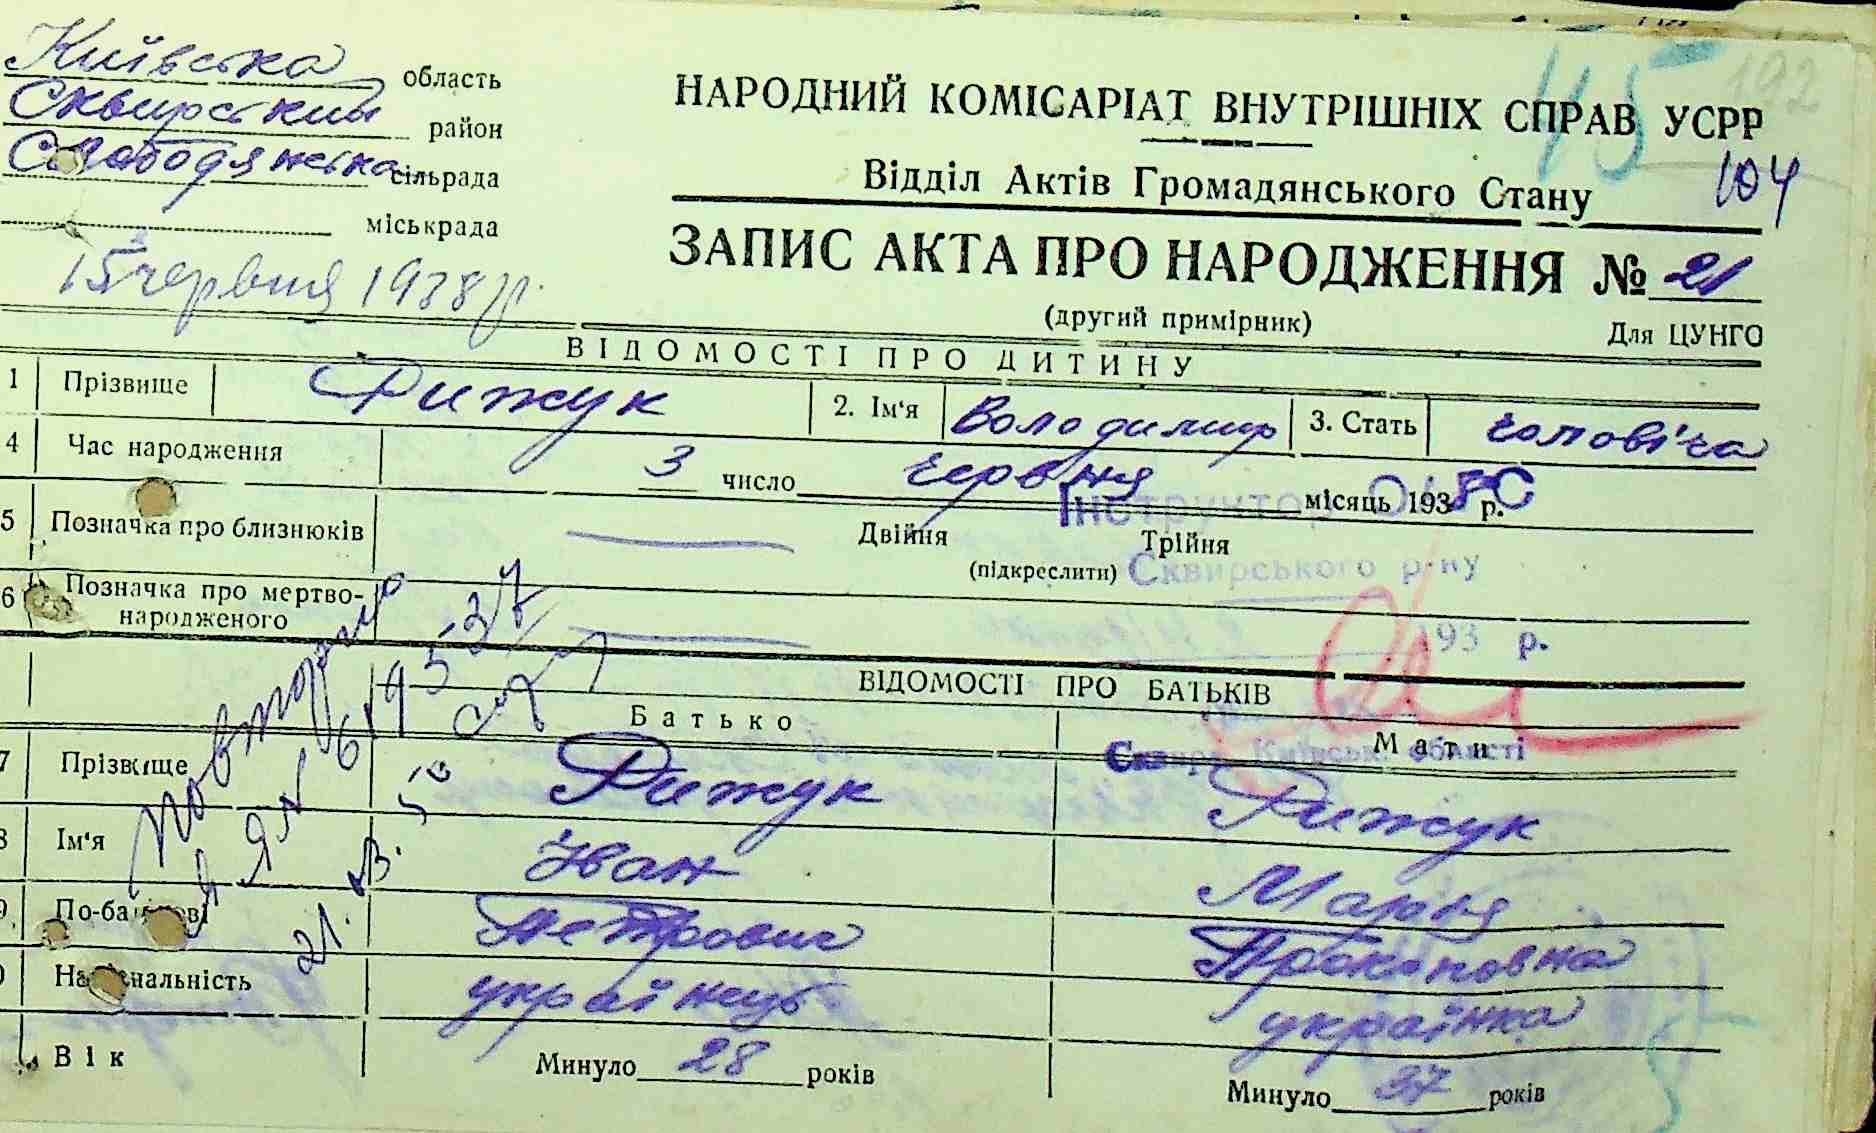 Київська область
Сквирський район
Слободянська сільрада
міськрада
15 червня 1938 р.
45
192
НАРОДНИЙ КОМІСАРІАТ ВНУТРІШНІХ СПРАВ УСРР
Відділ Актів Громадянського Стану
104
ЗАПИС АКТА ПРО НАРОДЖЕННЯ № 21
(другий примірник) Для ЦУНГО
ВІДОМОСТІ ПРО ДИТИНУ
1 Прізвище Рижук 2. Ім'я Володимир 3. Стать чоловіча
4 Час народження 3 число червня місяць 1938 р.
Інструктор
5 Позначка про близнюків Двійня Трійня
(підкреслити) Сквирського р-ну
6 Позначка про мертво-
народженого
193 р.
ВІДОМОСТІ ПРО БАТЬКІВ
Батько Мати
Сквира Київськ. області
7 Прізвище Рижук Рижук
8 Ім'я Іван Марія
9 По-батькові Петрович Прокоповна
Національність українець українка
Вік Минуло 28 років Минуло 37 років
повторно